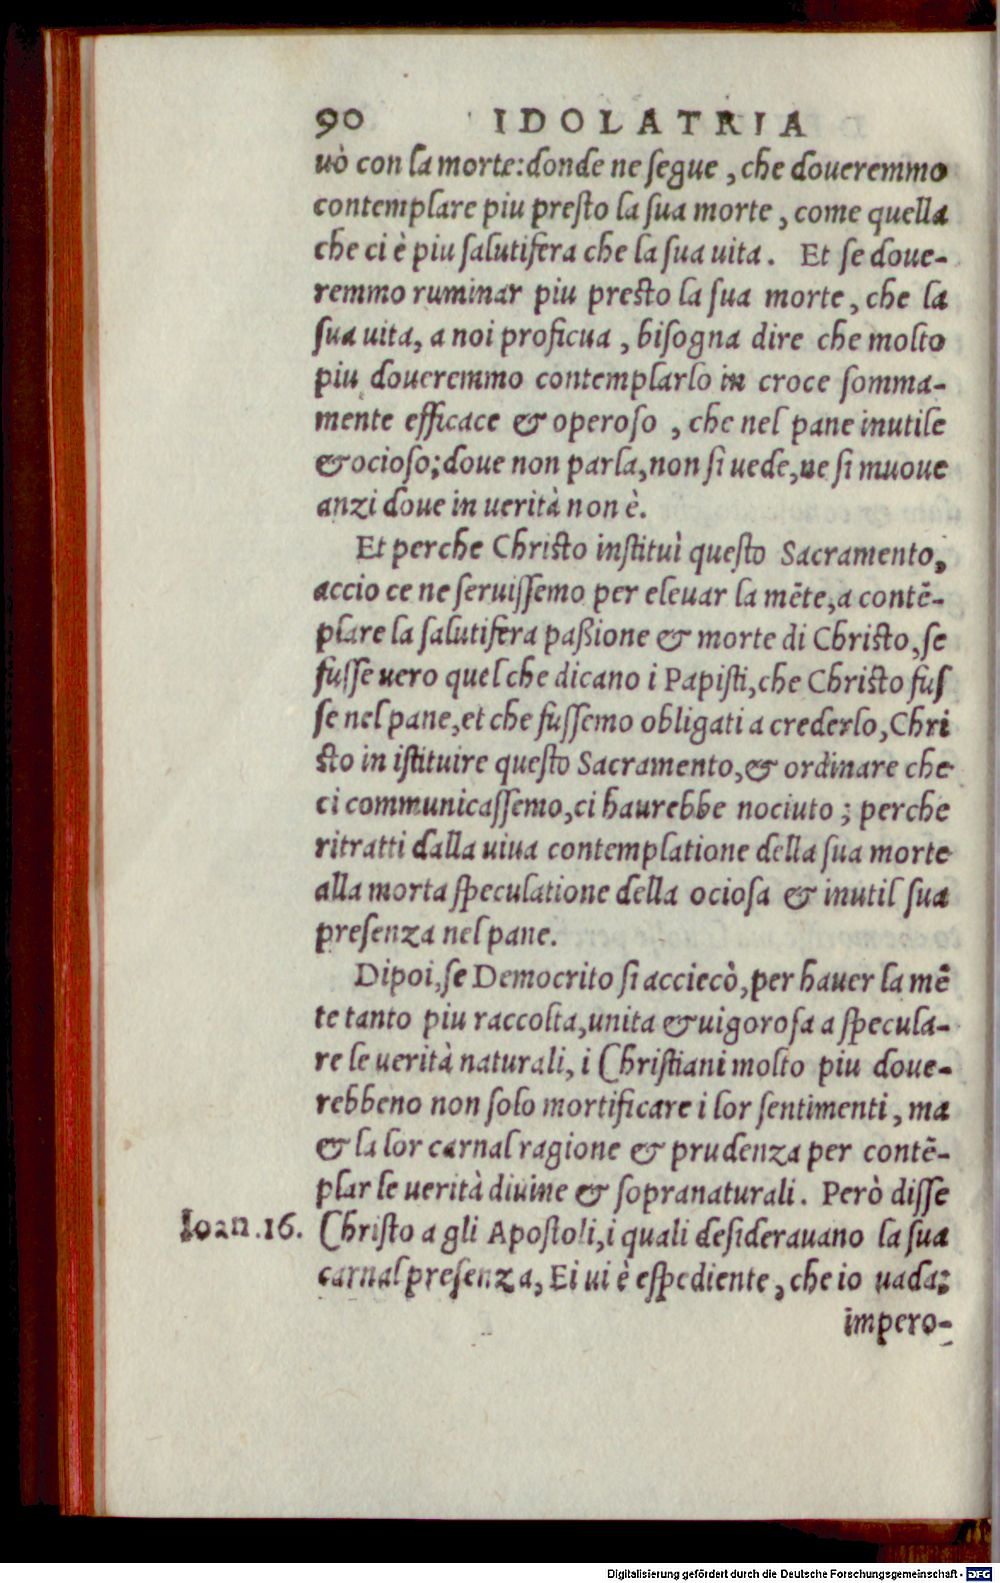 90 IDOLATRIA
uò con la morte: donde ne ſegue, che doueremmo
contemplare piu preſto la ſua morte, come quella
che ci è piu ſalutifera che la ſua uita. Et ſe doue-
remmo ruminar piu preſto la ſua morte, che la
ſua uita, a noi proficua, biſogna dire che molto
piu doueremmo contemplarlo in croce ſomma-
mente efficace & operoſo, che nel pane inutile
& ocioſo; doue non parla, non ſi uede, ne ſi muoue
anzi doue in uerità non è.
Et perche Chriſto inſtituì queſto Sacramento,
accio ce ne ſeruiſſemo per eleuar la mẽte, a contẽ-
plare la ſalutifera paßione & morte di Chriſto, ſe
fuſſe uero quel che dicano i Papiſti, che Chriſto fuſ
ſe nel pane, et che fuſſemo obligati a crederlo, Chri
ſto in iſtituire queſto Sacramento, & ordinare che
ci communicaſſemo, ci haurebbe nociuto; perche
ritratti dalla uiua contemplatione della ſua morte
alla morta ſpeculatione della ocioſa & inutil ſua
preſenza nel pane.
Dipoi, ſe Democrito ſi acciecò, per hauer la mẽ
te tanto piu raccolta, unita & uigoroſa a ſpecula-
re le uerità naturali, i Chriſtiani molto piu doue-
rebbeno non ſolo mortificare i lor ſentimenti, ma
& la lor carnal ragione & prudenza per contẽ-
plar le uerità diuine & ſopranaturali. Però diſſe
Ioan. 16. Chriſto a gli Apoſtoli, i quali deſiderauano la ſua
carnal preſenza, Ei ui è eſpediente, che io uada;
impero-
Digitalisierung gefördert durch die Deutsche Forschungsgemeinschaft - DFG